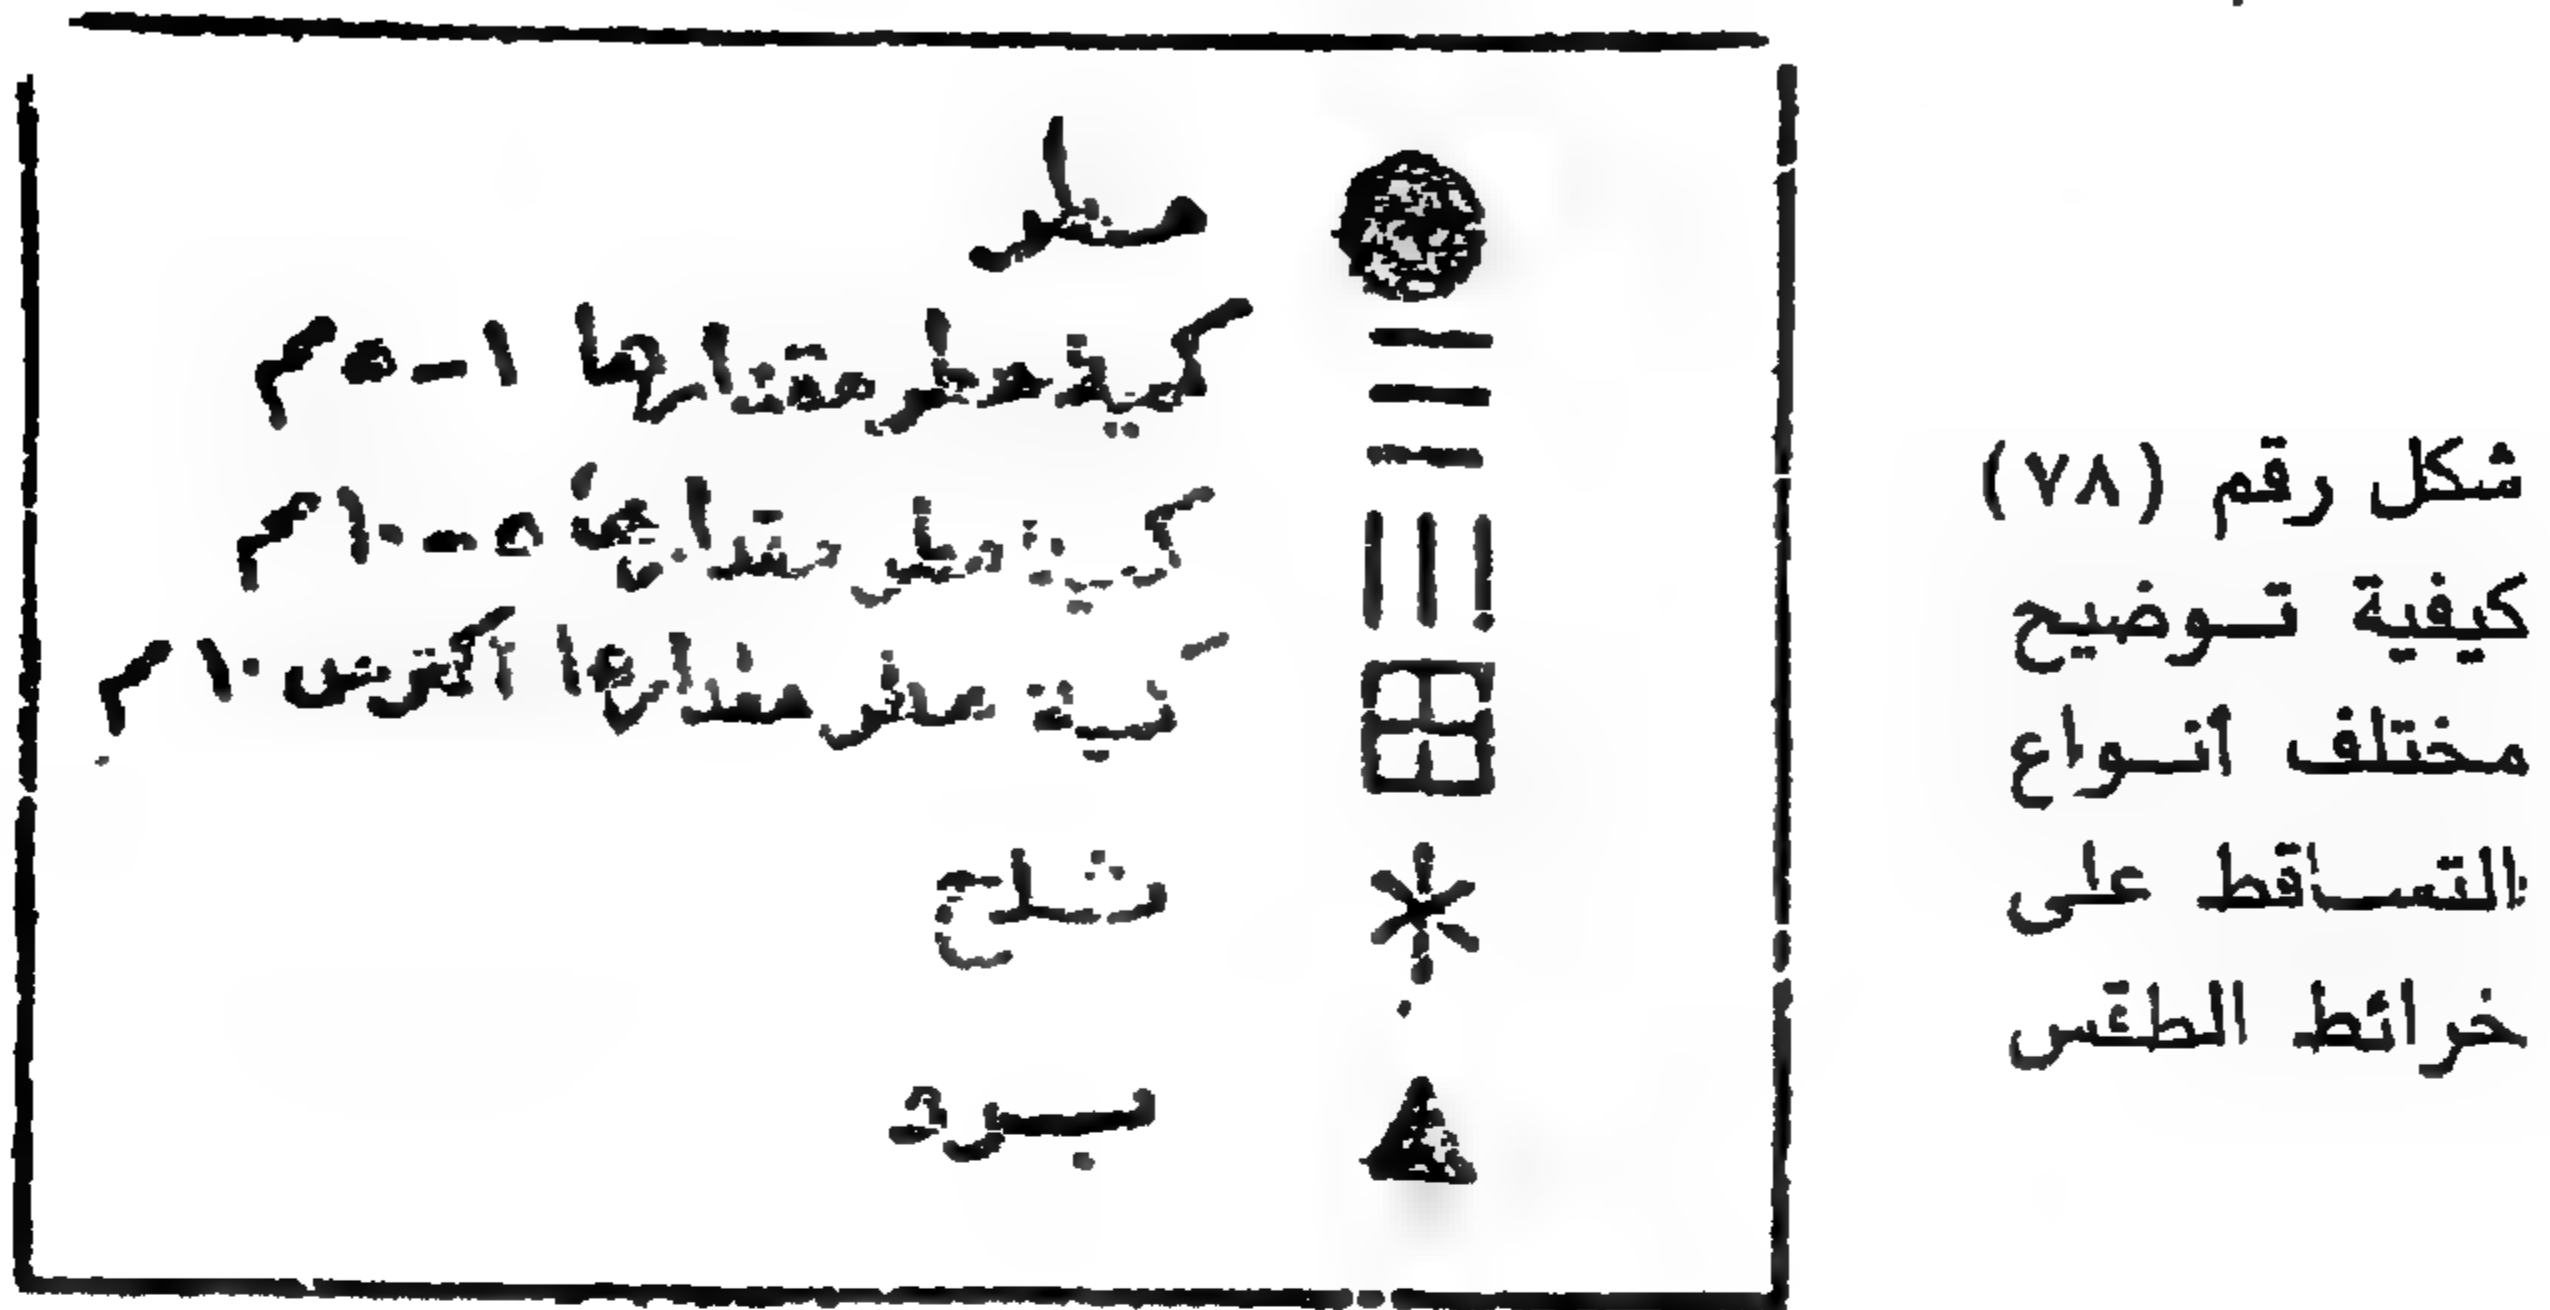 شكل رقم (٧٨)
كيفية تـوضيح
مختلف أنـواع
التسـاقط على
خرائط الطقس
مطر
كمية مطر مقدارها ١-٥ م
كمية مطر مقدارها ٥-١٠ م
كمية مطر مقدارها أكثر من ١٠ م
ثلج
برد